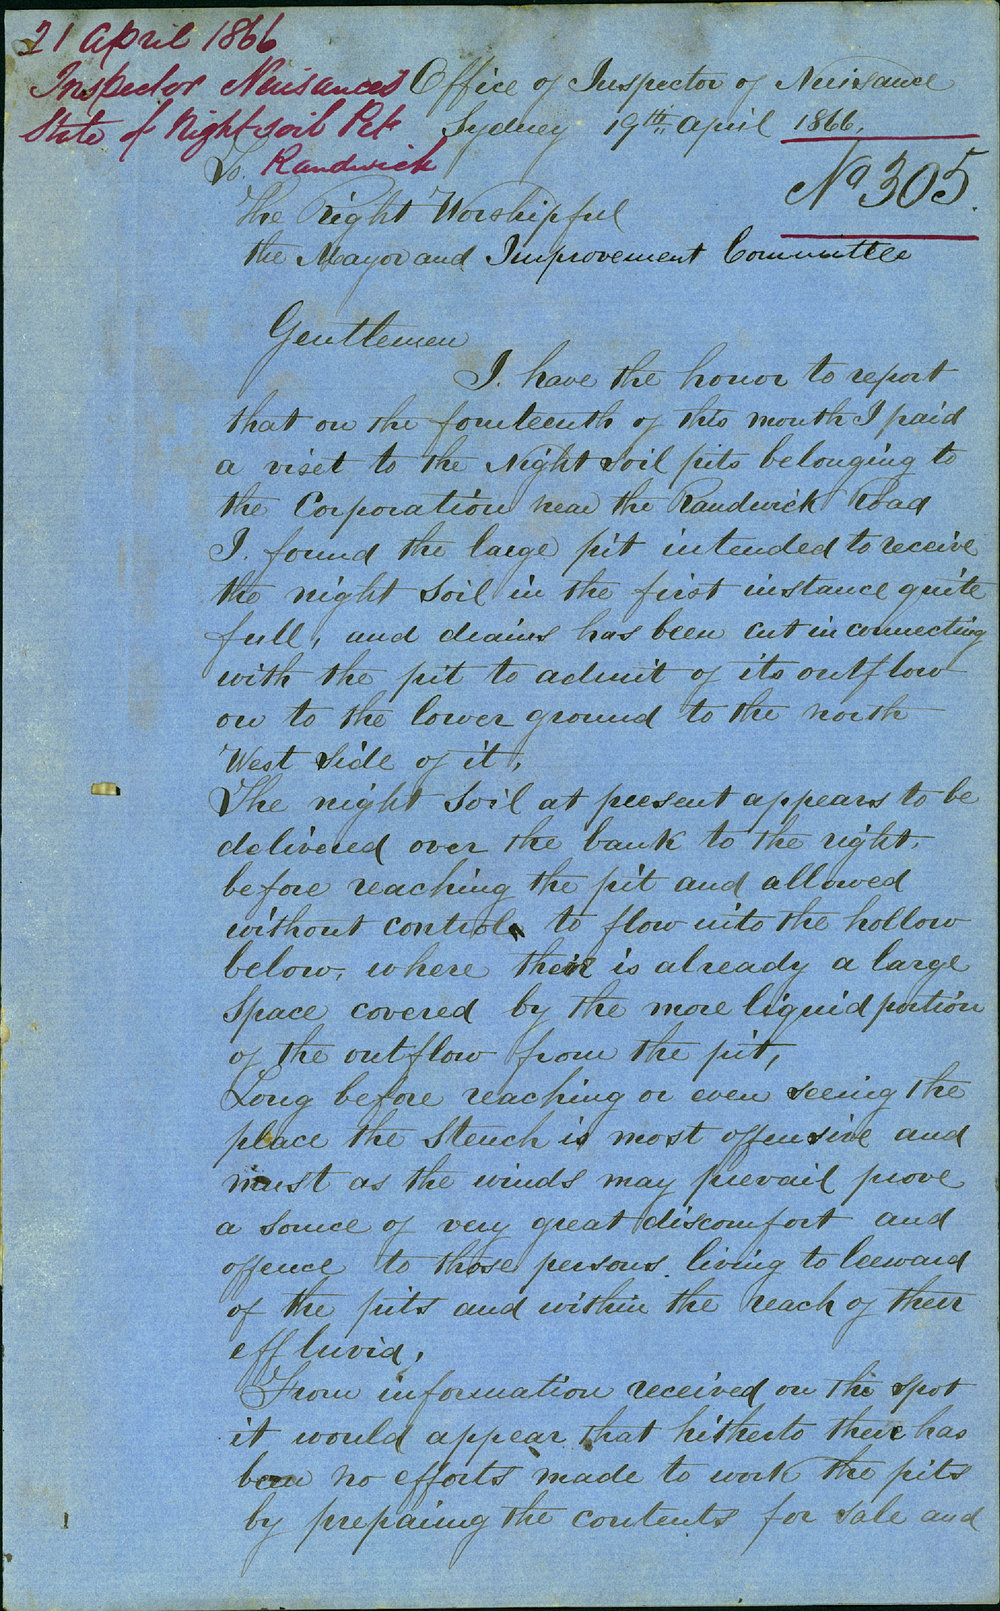 21 April 1866
Inspector Nuisances
State of Night-soil Pits
Randwick
Office of Inspector of Nuisance
Sydney 19th April 1866.
No 305.
To.
The Right Worshipful
the Mayor and Improvement Committee
Gentlemen
I. have the honor to report
that on the fourteenth of this month I paid
a viset to the Night soil pits belonging to
the Corporation near the Randwick Road
I. found the large pit intended to receive
the night soil in the first instance quite
full, and drains has been cut in connecting
with the pit to admit of its outflow
on to the lower ground to the north
West side of it,
The night soil at present appears to be
delivered over the bank to the right,
before reaching the pit and allowed
without control, to flow into the hollow
below, where their is already a large
space covered by the more liquid portion
of the outflow from the pit,
Long before reaching or even seeing the
place the stench is most offensive and
must as the winds may prevail prove
a source of very great discomfort and
offence to those persons living to leeward
of the pits and within the reach of their
effluvia,
From information received on the spot
it would appear that hitherto there has
been no efforts made to work the pits
by prepairing the contents for sale and